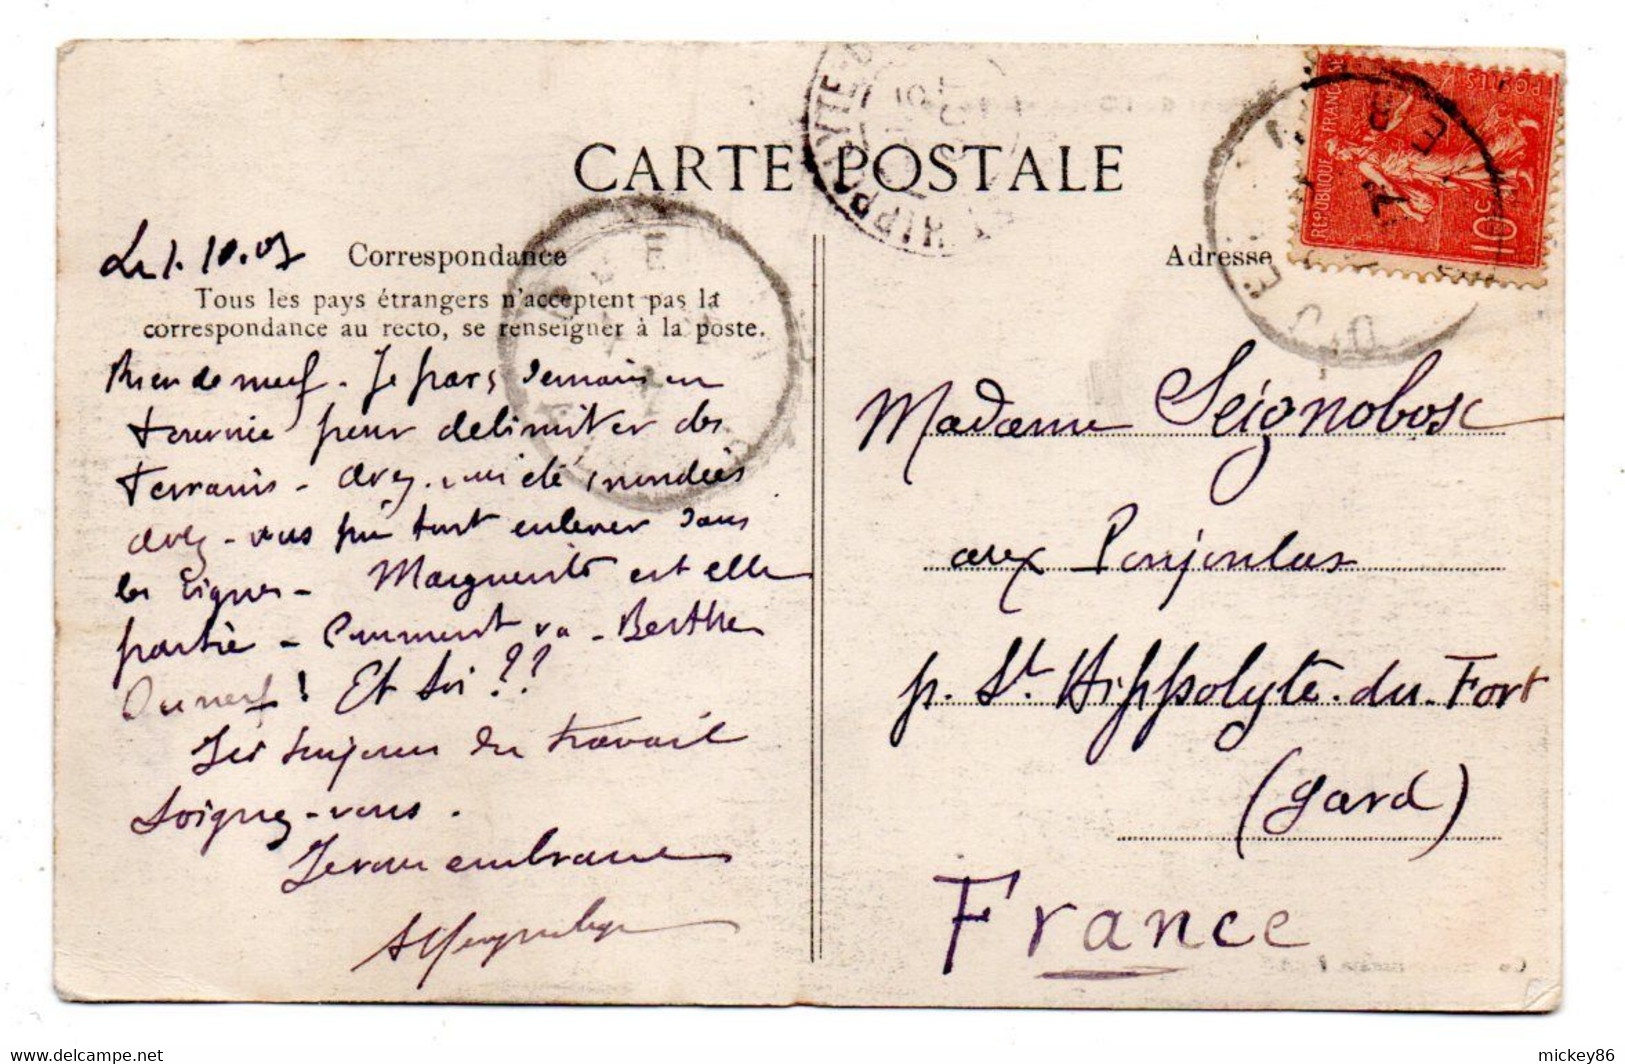 CARTE POSTALE
Le 1.10.07
Correspondance
Tous les pays étrangers n'acceptent pas la
correspondance au recto, se renseigner à la poste.
Rien de neuf. Je pars demain en
tournée pour delimiter des
terrains. avez-vous été inondées
avez-vous pu tout enlever dans
les vignes. Marguerite est elle
partie. Comment va. Berthe
Du neuf! Et toi??
Ici toujours du travail
Soignez-vous.
Je vous embrasse
Adresse
Madame Seignobosc
aux Poujoulas
p. St. Hippolyte.du.Fort
(Gard)
France
REPUBLIQUE FRANÇAISE
POSTES
10c
HIPPOLYTE
mickey86